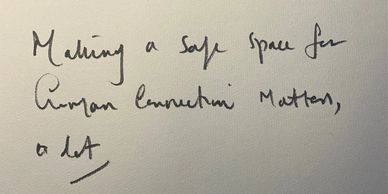 Making a safe space for
human connection matters,
a lot